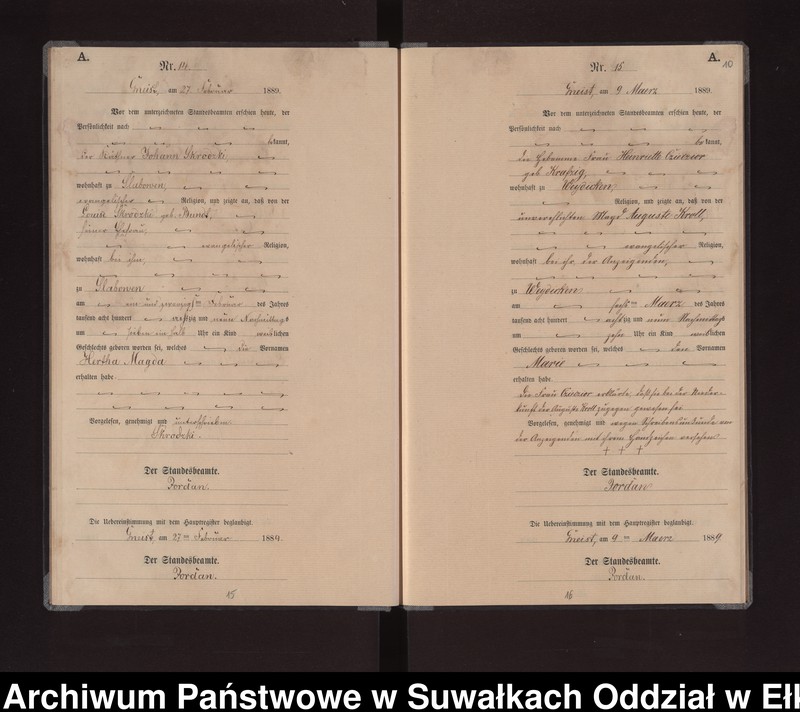 A.
Nr. 14.
Gneist, am 27 Februar 1889.
Vor dem unterzeichneten Standesbeamten erschien heute, der
Persönlichkeit nach
bekannt,
der Johann Skrodzki,
wohnhaft zu Slabowen,
evangelischer Religion, und zeigte an, daß von der
Louise Skrodzki geb.
seiner Ehefrau,
evangelischer Religion,
wohnhaft bei ihm,
zu Slabowen
am ein und zwanzigsten Februar des Jahres
tausend acht hundert achtzig und neun Nachmittags
um sieben ein halb Uhr ein Kind weiblichen
Geschlechts geboren worden sei, welches die Vornamen
Hertha Magda
erhalten habe
Vorgelesen, genehmigt und unterschrieben
Skrodzki.
Der Standesbeamte.
Jordan.
Die Uebereinstimmung mit dem Hauptregister beglaubigt.
Gneist, am 27 ten Februar 1889.
Der Standesbeamte.
Jordan.
15
A. 10
Nr. 15
Gneist, am 9 Maerz 1889.
Vor dem unterzeichneten Standesbeamten erschien heute, der
Persönlichkeit nach
bekannt,
die Hebamme Frau Henriette Czwior
geb.
wohnhaft zu Weydicken,
Religion, und zeigte an, daß von der
unverehelichten Magd Auguste Kroll,
evangelischer Religion,
wohnhaft bei ihr der Anzeigenden,
zu Weydicken
am sechsten Maerz des Jahres
tausend acht hundert achtzig und neun Nachmittags
um zehn Uhr ein Kind weiblichen
Geschlechts geboren worden sei, welches den Vornamen
Marie
erhalten habe
Die Frau erklärte, daß sie bei der Nieder-
kunft der Auguste Kroll zugegen gewesen sei
Vorgelesen, genehmigt und wegen Schreibensunkunde von
der Anzeigenden mit ihrem Handzeichen versehen
† † †
Der Standesbeamte.
Jordan
Die Uebereinstimmung mit dem Hauptregister beglaubigt.
Gneist, am 9 ten Maerz 1889
Der Standesbeamte.
Jordan.
16
Archiwum Państwowe w Suwałkach Oddział w Ełk